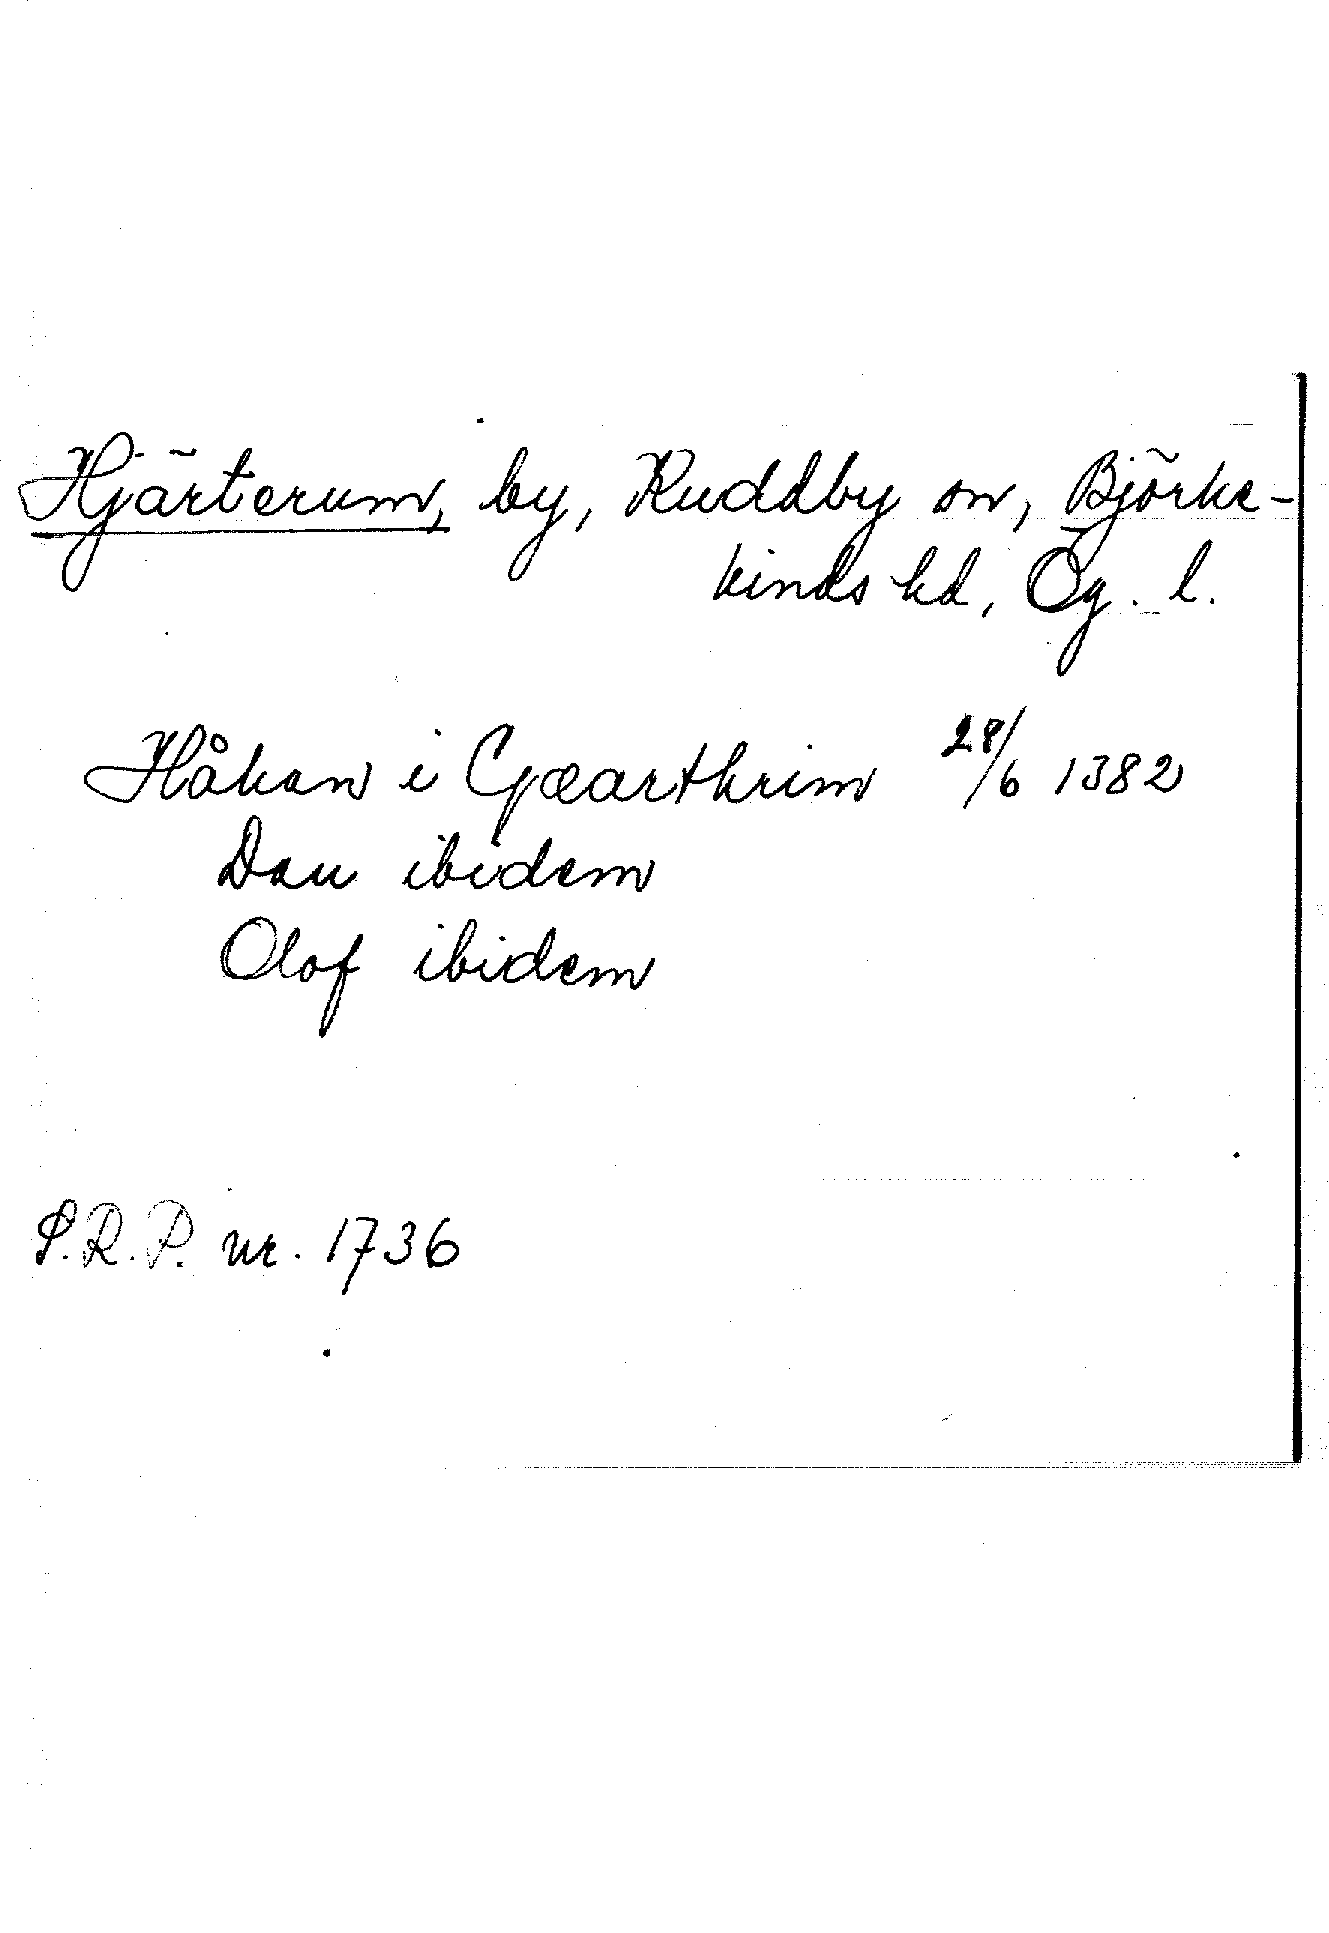 Hjärterum, by, Ruddby sn, Björke-
kinds hd, Ög. l.
Håkan i Gæarthrim 28/6 1382
Dan ibidem
Olof ibidem
S.R.P. nr. 1736